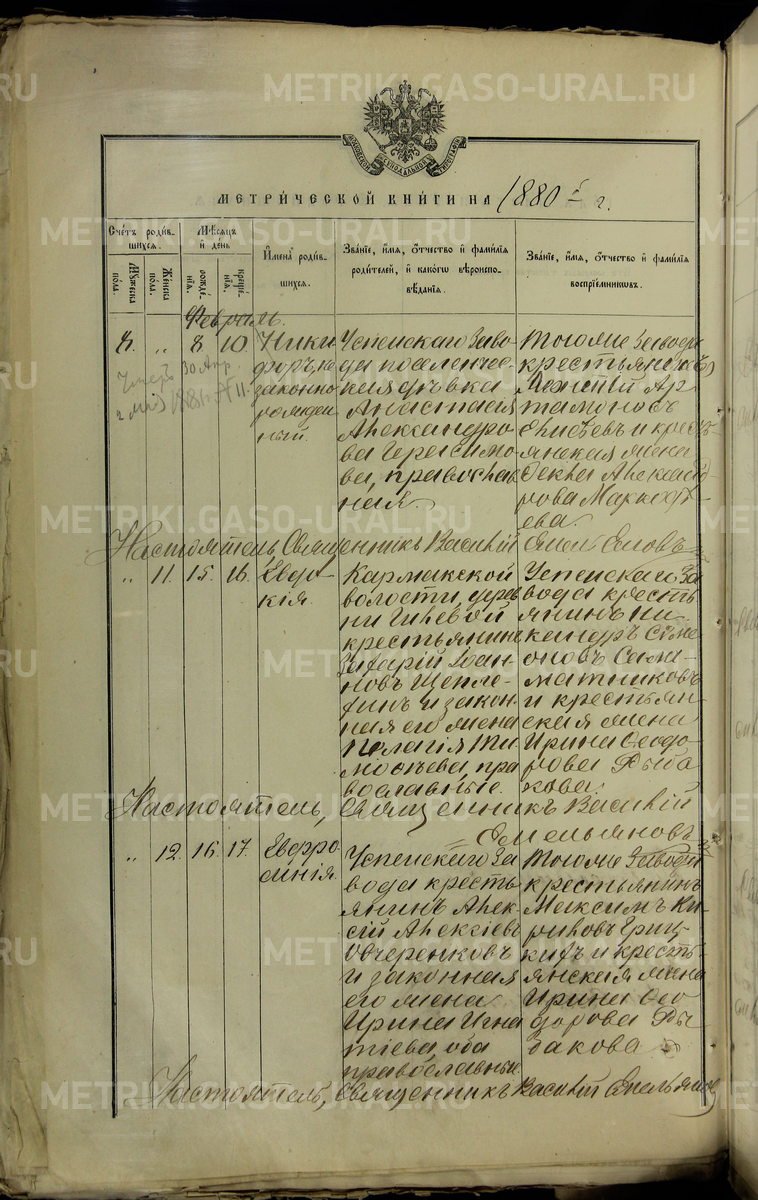 МЕТРИ́ЧЕСКОЙ КНИ́ГИ НА 1880 г.
Сче́тъ роди́в-
шихся.
Му́жеска
по́ла.
Же́нска
по́ла.
Мѣ́сяцъ
и҆ де́нь
рожде́-
нїѧ.
креще́-
нїѧ.
И҆мена̀ роди́в-
шихся.
Зва́нїе, и҆́мя, ѻ҆́тчество и҆ фами́лїѧ
роди́телей, и҆ како́гѡ вѣроиспо-
вѣ́данїѧ.
Зва́нїе, и҆́мя, ѻ҆́тчество и҆ фами́лїѧ
воспрїе́мникѡвъ.
Февраль.
8. „ 8 10.
Ники-
форъ, не
законно
рожден-
ный.
30 Апр.
1881
Успенскаго Заво-
да поселенче-
ская дѣвка
Анастасія
Александро-
ва Герасимо-
ва, православ
ная.
Тогоже Завода
крестьянинъ
Ар
тамоновъ
Елисѣевъ и кресть-
янская жена
Ѳекла Александ-
рова
Настоятель, Священникъ Василій Емельяновъ
„ 11. 15. 16.
Евдо-
кія.
Кармакской
волости, дерев
ни Гилевой
крестьянинъ
Захарій Іоан-
новъ Щепло-
гинъ и закон-
ная его жена
Пелагія Ти-
моѳѣева, пра
вославные.
Успенскаго За
вода кресть
янинъ Ни-
каноръ Симе
оновъ Сали-
матниковъ
и крестьян-
ская жена
Ирина Ѳеодо-
рова Рыба
кова.
Настоятель, Священникъ Василій
Емельяновъ
„ 12. 16. 17.
Евфро-
синія.
Успенскаго За
вода кресть
янинъ Алек-
сій Алексіевъ
Овчеренковъ
и законная
его жена
Ирина Игна
тіева, оба
православные.
Тогоже Завода
крестьянинъ
Максимъ Ки-
риловъ Гриц-
кихъ и кресть-
янская жена
Ирина Ѳео
дорова Ры
бакова
Настоятель, Священникъ Василій Емельяновъ
METRIKI.GASO-URAL.RU